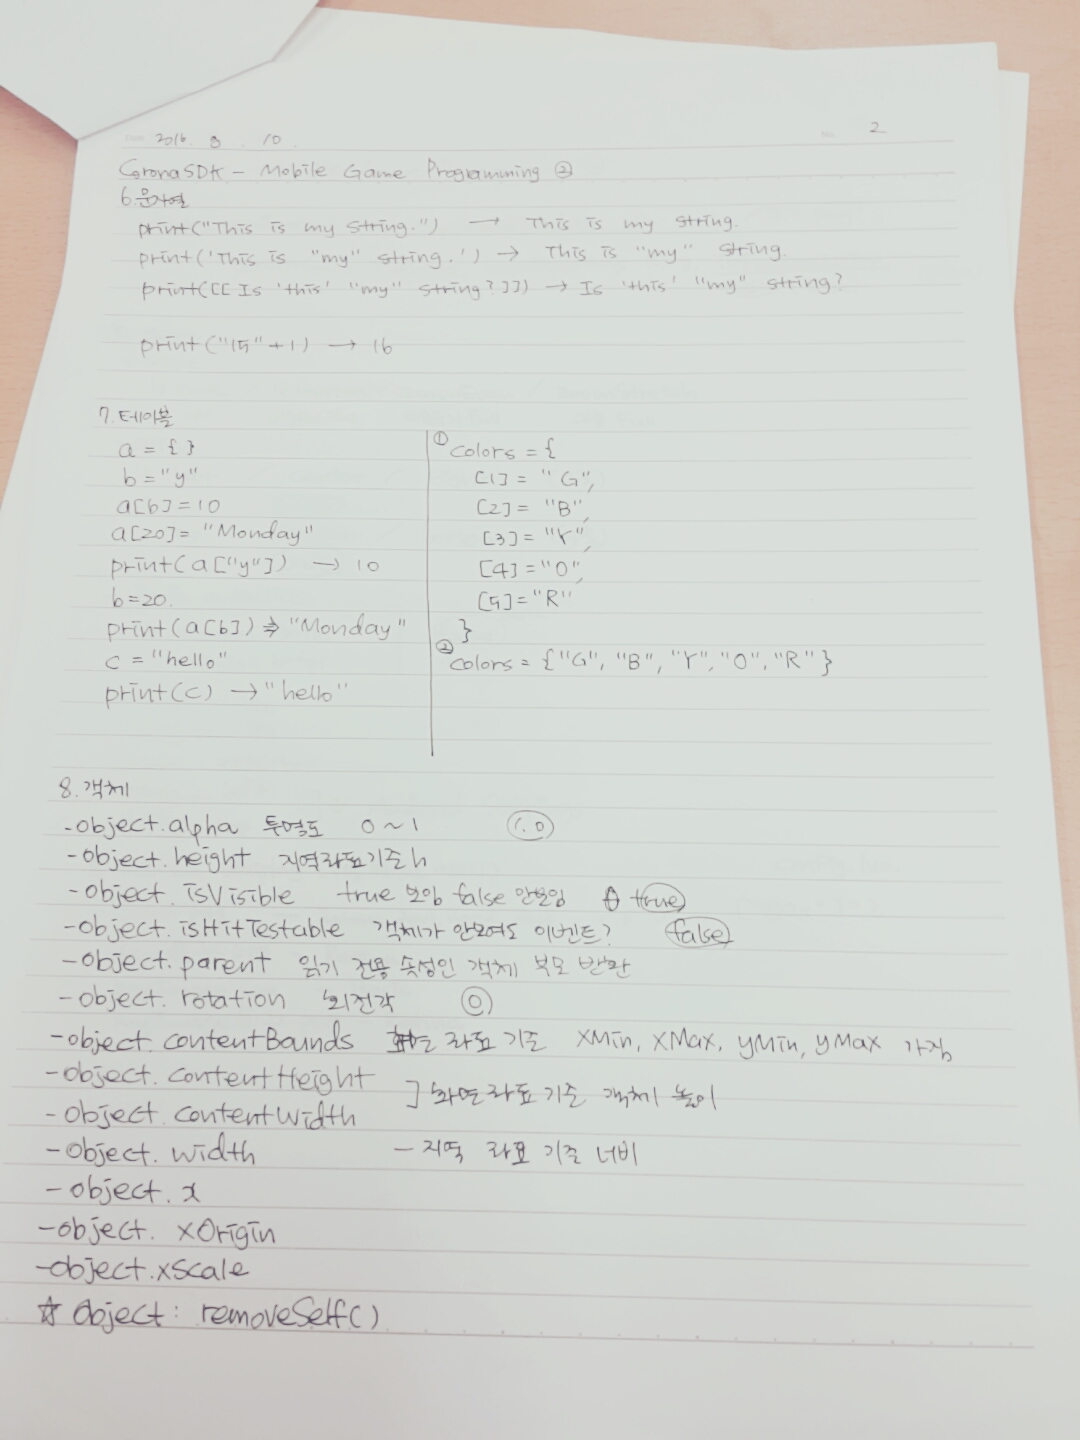 2016. 8 10
2
CoronaSDK - Mobile Game Programming ②
6.문자열
print("This is my string.") → This is my string.
print('This is "my" string.') → This is "my" string.
print([[Is 'this' "my" string?]]) → Is 'this' "my" string?
print("15"+1) → 16
7.테이블
a = { }
b = "y"
a[b]=10
a[20]= "Monday"
print(a["y"]) → 10
b=20.
print(a[b]) → "Monday"
c = "hello"
print(c) → "hello"
① colors = {
[1] = "G",
[2] = "B",
[3] = "Y",
[4] = "O",
[5] = "R"
}
② colors = {"G", "B", "Y", "O", "R"}
8.객체
-object.alpha 투명도 0~1 1.0
-object.height 지역좌표기준 h
-object.isVisible true 보임 false 안보임 true
-object.isHitTestable 객체가 안보여도 이벤트? false
-object.parent 읽기 전용 속성인 객체 부모 반환
-object.rotation 회전각 0
-object.contentBounds 좌표 기준 xMin, xMax, yMin, yMax 가짐
-object.contentHeight ] 화면좌표기준 객체 높이
-object.contentWidth
-object.width - 지역 좌표 기준 너비
-object.x
-object.xOrigin
-object.xScale
☆ object:removeSelf()